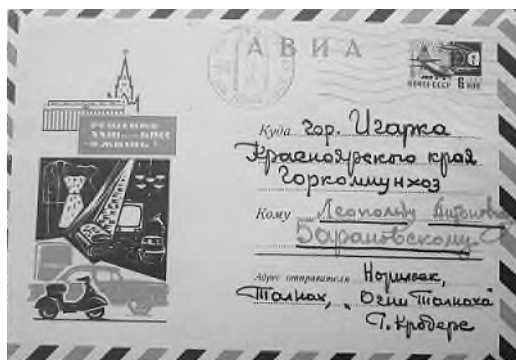 АВИА
ПОЧТА СССР 6 КОП
РЕШЕНИЯ
XXIII КПСС
В ЖИЗНЬ!
Куда гор. Игарка
Красноярского края
Горкоммунхоз
Кому Леопольду Антоновичу
Барановскому
Адрес отправителя Норильск,
Талнах, "Огни Талнаха"
Г. Кродерс